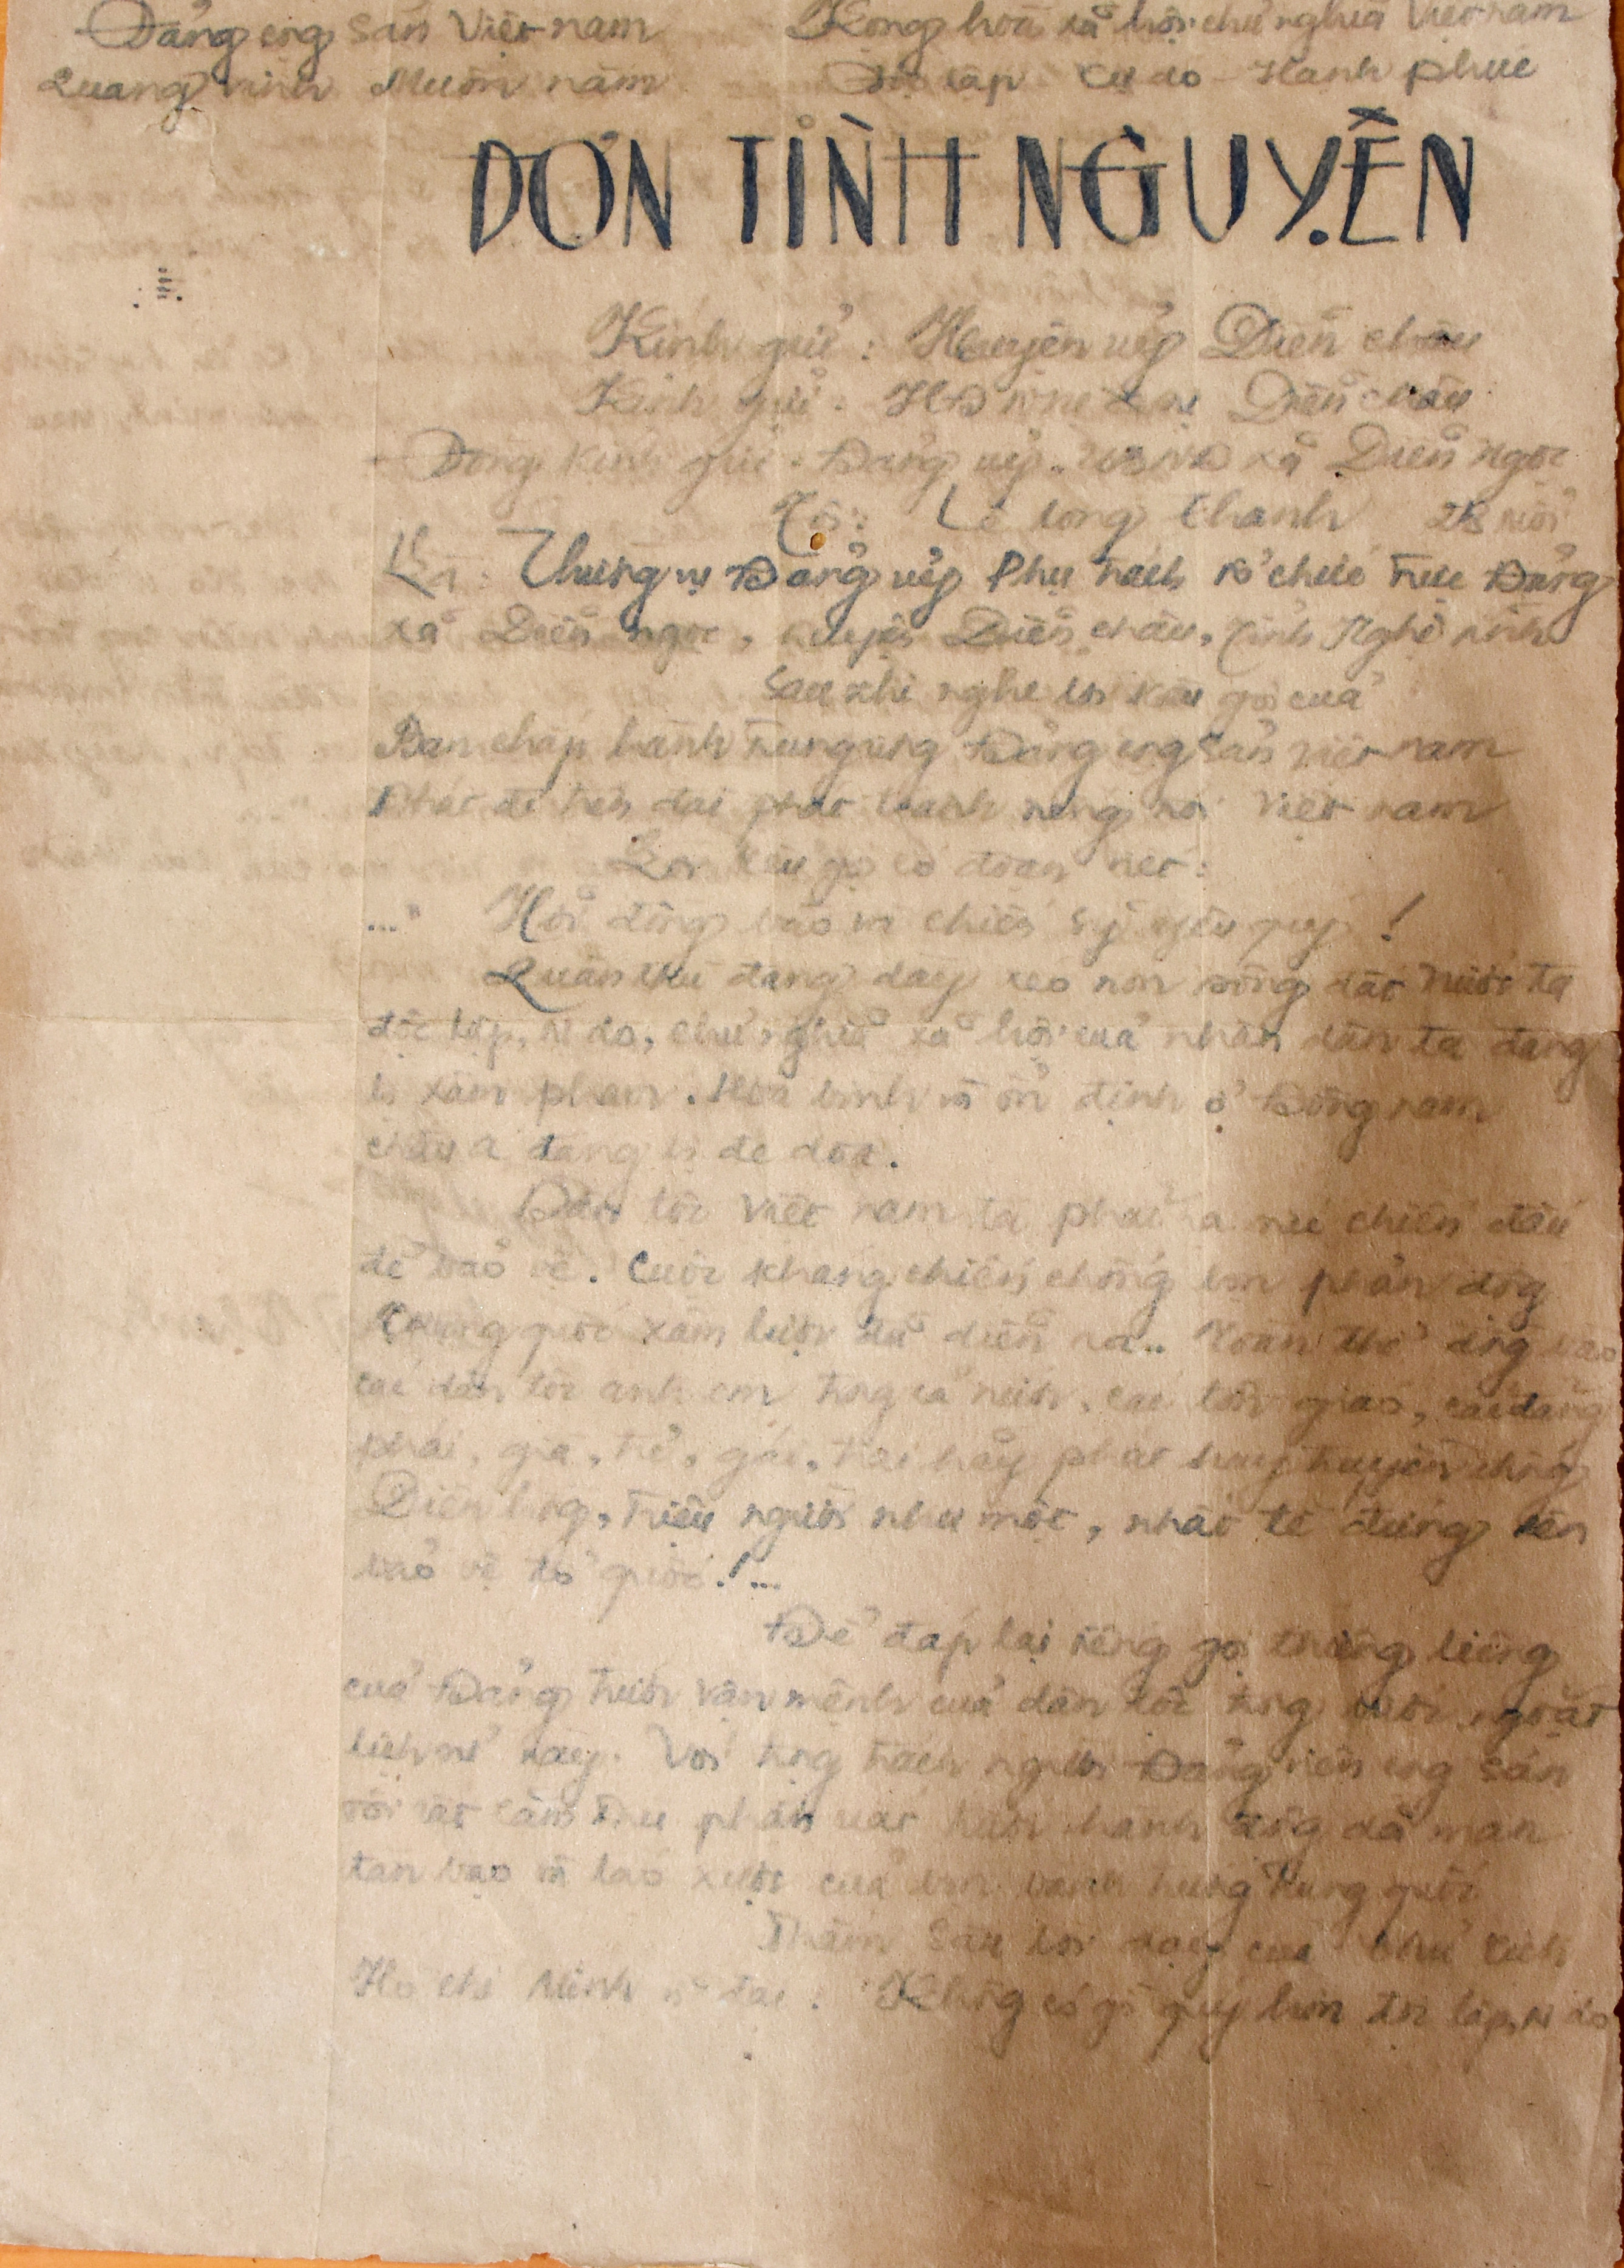 Đảng cộg sản Việt nam Cộng hoà xã hội chủ nghĩa Việt nam
Quang vinh Muôn năm Độc lập Tự do - Hạnh phúc
ĐƠN TÌNH NGUYỆN
Kính gửi : Huyện uỷ Diễn châu
Kính gửi : Diễn châu
- Đồng Kính gửi : Đảng uỷ. UBND xã Diễn Ngọc
Tôi : Lê long thanh 28 tuổi
Là : Thường vụ Đảng uỷ Phụ trách tổ chức trực Đảng
xã Diễn ngọc, huyện Diễn châu, tỉnh Nghệ tĩnh
Sau khi nghe lời kêu gọi của
Ban chấp hành Trung ương Đảng cộg sản việt nam
Phát trên đài phát thanh tiếng nói Việt nam
Lời kêu gọi có đoạn viết :
..." Hỡi đồng bào và chiến sỹ yêu quý !
Quân thù đang dày xéo non sông đất nước ta
độc lập, tự do, chủ nghĩa xã hội của nhân dân ta đang
bị xâm phạm. Hoà bình và ổn định ở Đông nam
châu á đang bị đe doạ.
Dân tộc Việt nam ta phải chiến đấu
để bảo vệ. Cuộc kháng chiến chống bọn phản độg
Trung quốc xâm lược đã diễn ra.. Toàn thể đồg bào
các dân tộc anh em trog cả nước, các tôn giáo, các đảng
phái, già, trẻ, gái, trai hãy phát huy truyền thốg
Diên hồg, triệu người như một, nhất tề đứng lên
bảo vệ tổ quốc!"...
Để đáp lại tiếng gọi thiêng liêng
của Đảng trước vận mệnh của dân tộc trog bước ngoặt
lịch sử này. Với trọg trách người Đảng viên cộg sản
tôi rất căm thù phẫn uất trước hành độg dã man
tàn bạo và láo xược của bọn bành trướg Trung quốc
Thấm sâu lời dạy của Chủ tịch
Hồ chí Minh vĩ đại : "Khôg có gì quý hơn độc lập, tự do